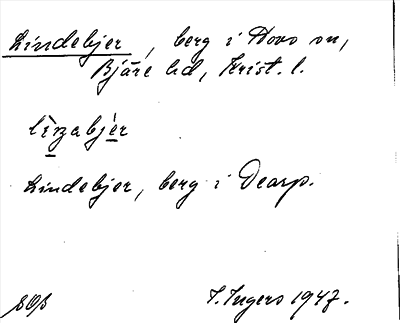 Lindebjer, berg i Hovs sn,
Bjäre hd, Krist. l.
lìnabjèr
Lindebjer, berg i Dearp.
I. Ingers 1947.